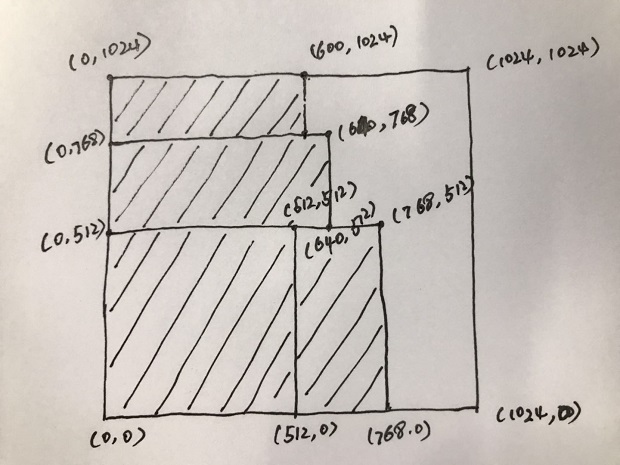 (0,1024)
(600,1024)
(1024,1024)
(0,768)
(640,768)
(512,512)
(768,512)
(0,512)
(640,512)
(0,0)
(512,0)
(768.0)
(1024,0)